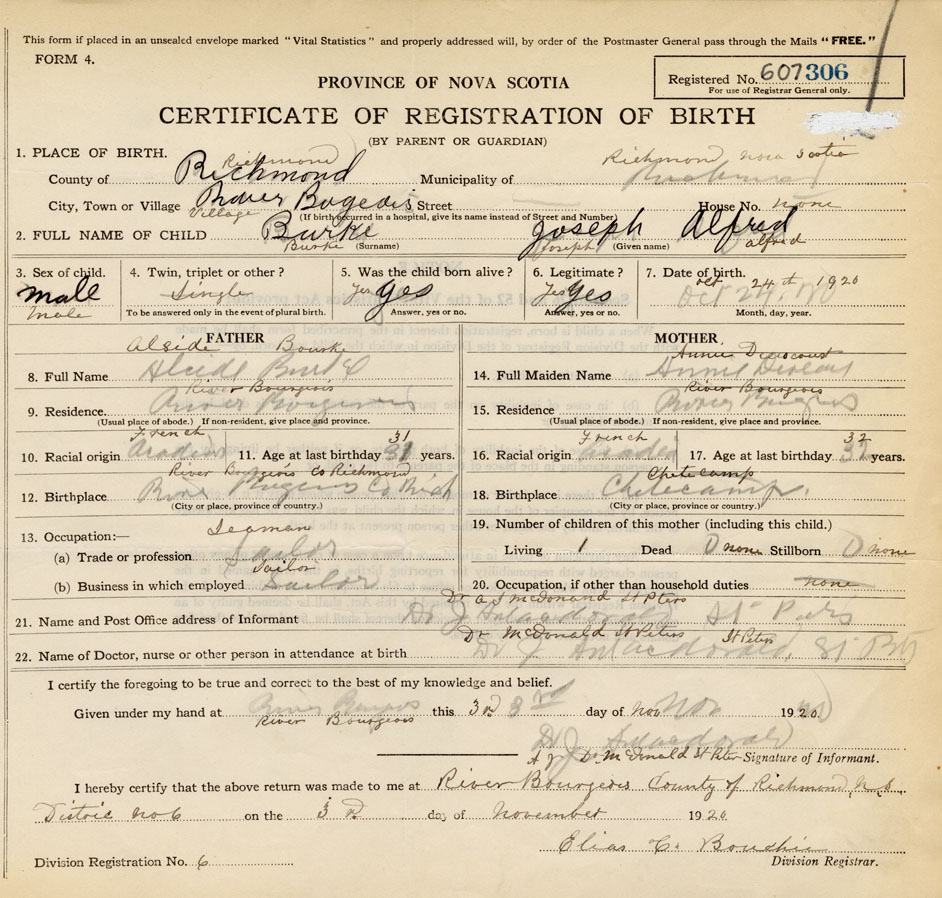 This form if placed in an unsealed envelope marked "Vital Statistics" and properly addressed will, by order of the Postmaster General pass through the Mails "FREE."
FORM 4.
PROVINCE OF NOVA SCOTIA
Registered No. 607306
For use of Registrar General only.
CERTIFICATE OF REGISTRATION OF BIRTH
(BY PARENT OR GUARDIAN)
1. PLACE OF BIRTH.
Richmond Richmond Nova Scotia
County of Richmond Municipality of Richmond
City, Town or Village River Bogeois Street House No. none
Village (If birth occurred in a hospital, give its name instead of Street and Number)
2. FULL NAME OF CHILD Burke Joseph Alfred
Burke (Surname) Joseph (Given name) alfred
3. Sex of child. 4. Twin, triplet or other? 5. Was the child born alive? 6. Legitimate? 7. Date of birth.
Male Single Yes yes Yes Yes Oct 24th 1920
Male To be answered only in the event of plural birth. Answer, yes or no. Answer, yes or no. Month, day, year.
FATHER
Alside Bourke
8. Full Name Alcide Burke
River Bourgeois
9. Residence. River Bourgeois
(Usual place of abode.) If non-resident, give place and province.
French 31
10. Racial origin 11. Age at last birthday 31 years.
River Bourgeois Co Richmond
12. Birthplace River Co Rich
(City or place, province or country.)
Seaman
13. Occupation:—
(a) Trade or profession Sailor
Sailor
(b) Business in which employed Sailor
MOTHER
Annie
14. Full Maiden Name Annie
River Bourgeois
15. Residence River
(Usual place of abode.) If non-resident, give place and province.
French 32
16. Racial origin 17. Age at last birthday 32 years.
Chetecamp
18. Birthplace Chetecamp.
(City or place, province or country.)
19. Number of children of this mother (including this child.)
Living 1 Dead 0 none Stillborn 0 none
20. Occupation, if other than household duties none
Dr A J McDonand St Pters
21. Name and Post Office address of Informant Dr J St
Dr McDonald St Peters St Peters
22. Name of Doctor, nurse or other person in attendance at birth Dr J St
I certify the foregoing to be true and correct to the best of my knowledge and belief.
Given under my hand at River this 3rd 3rd day of Nov Nov 1920.
River Bourgeois
Dr J
A J Dr McDonald St Peter Signature of Informant.
I hereby certify that the above return was made to me at River Bourgeois County of Richmond N.S.
Distric no 6 on the 3rd day of November 1920.
Elias C. Boudhie
Division Registration No. 6 Division Registrar.